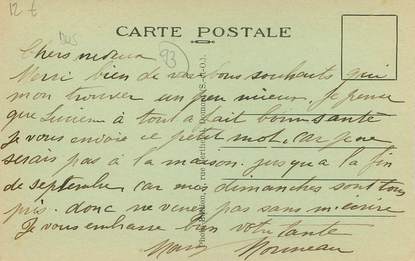 12 €
CARTE POSTALE
93
Chers neveux
Merci bien de vos bons souhaits qui
mon trouver un peu mieux. je pense
que Lucien à tout a fait bonne santé
Je vous envoie ce petit mot. car je ne
serais pas à la maison. jusqu'a la fin
de septembre car mes dimanches sont tous
pris. donc ne venez pas sans m'écrire
Je vous embrasse bien votre tante